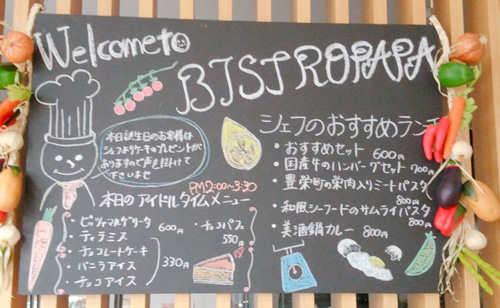 Welcome to
BISTRO PAPA
本日誕生日のお客様は
シェフよりケーキのプレゼントが
ありますので声を掛けて
下さいませ
PM2:00~3:30
本日のアイドルタイムメニュー
・ピッツァマルゲリータ 600円
・ティラミス
・チョコレートケーキ
・バニラアイス
・チョコアイス
330円
・チョコパフェ
550円
シェフのおすすめランチ
・おすすめセット 600円
・国産牛のハンバーグセット 700円
・豊栄町の栄肉入りミートパスタ
800円
・和風シーフードのサムライパスタ
800円
・美酒鍋カレー 800円